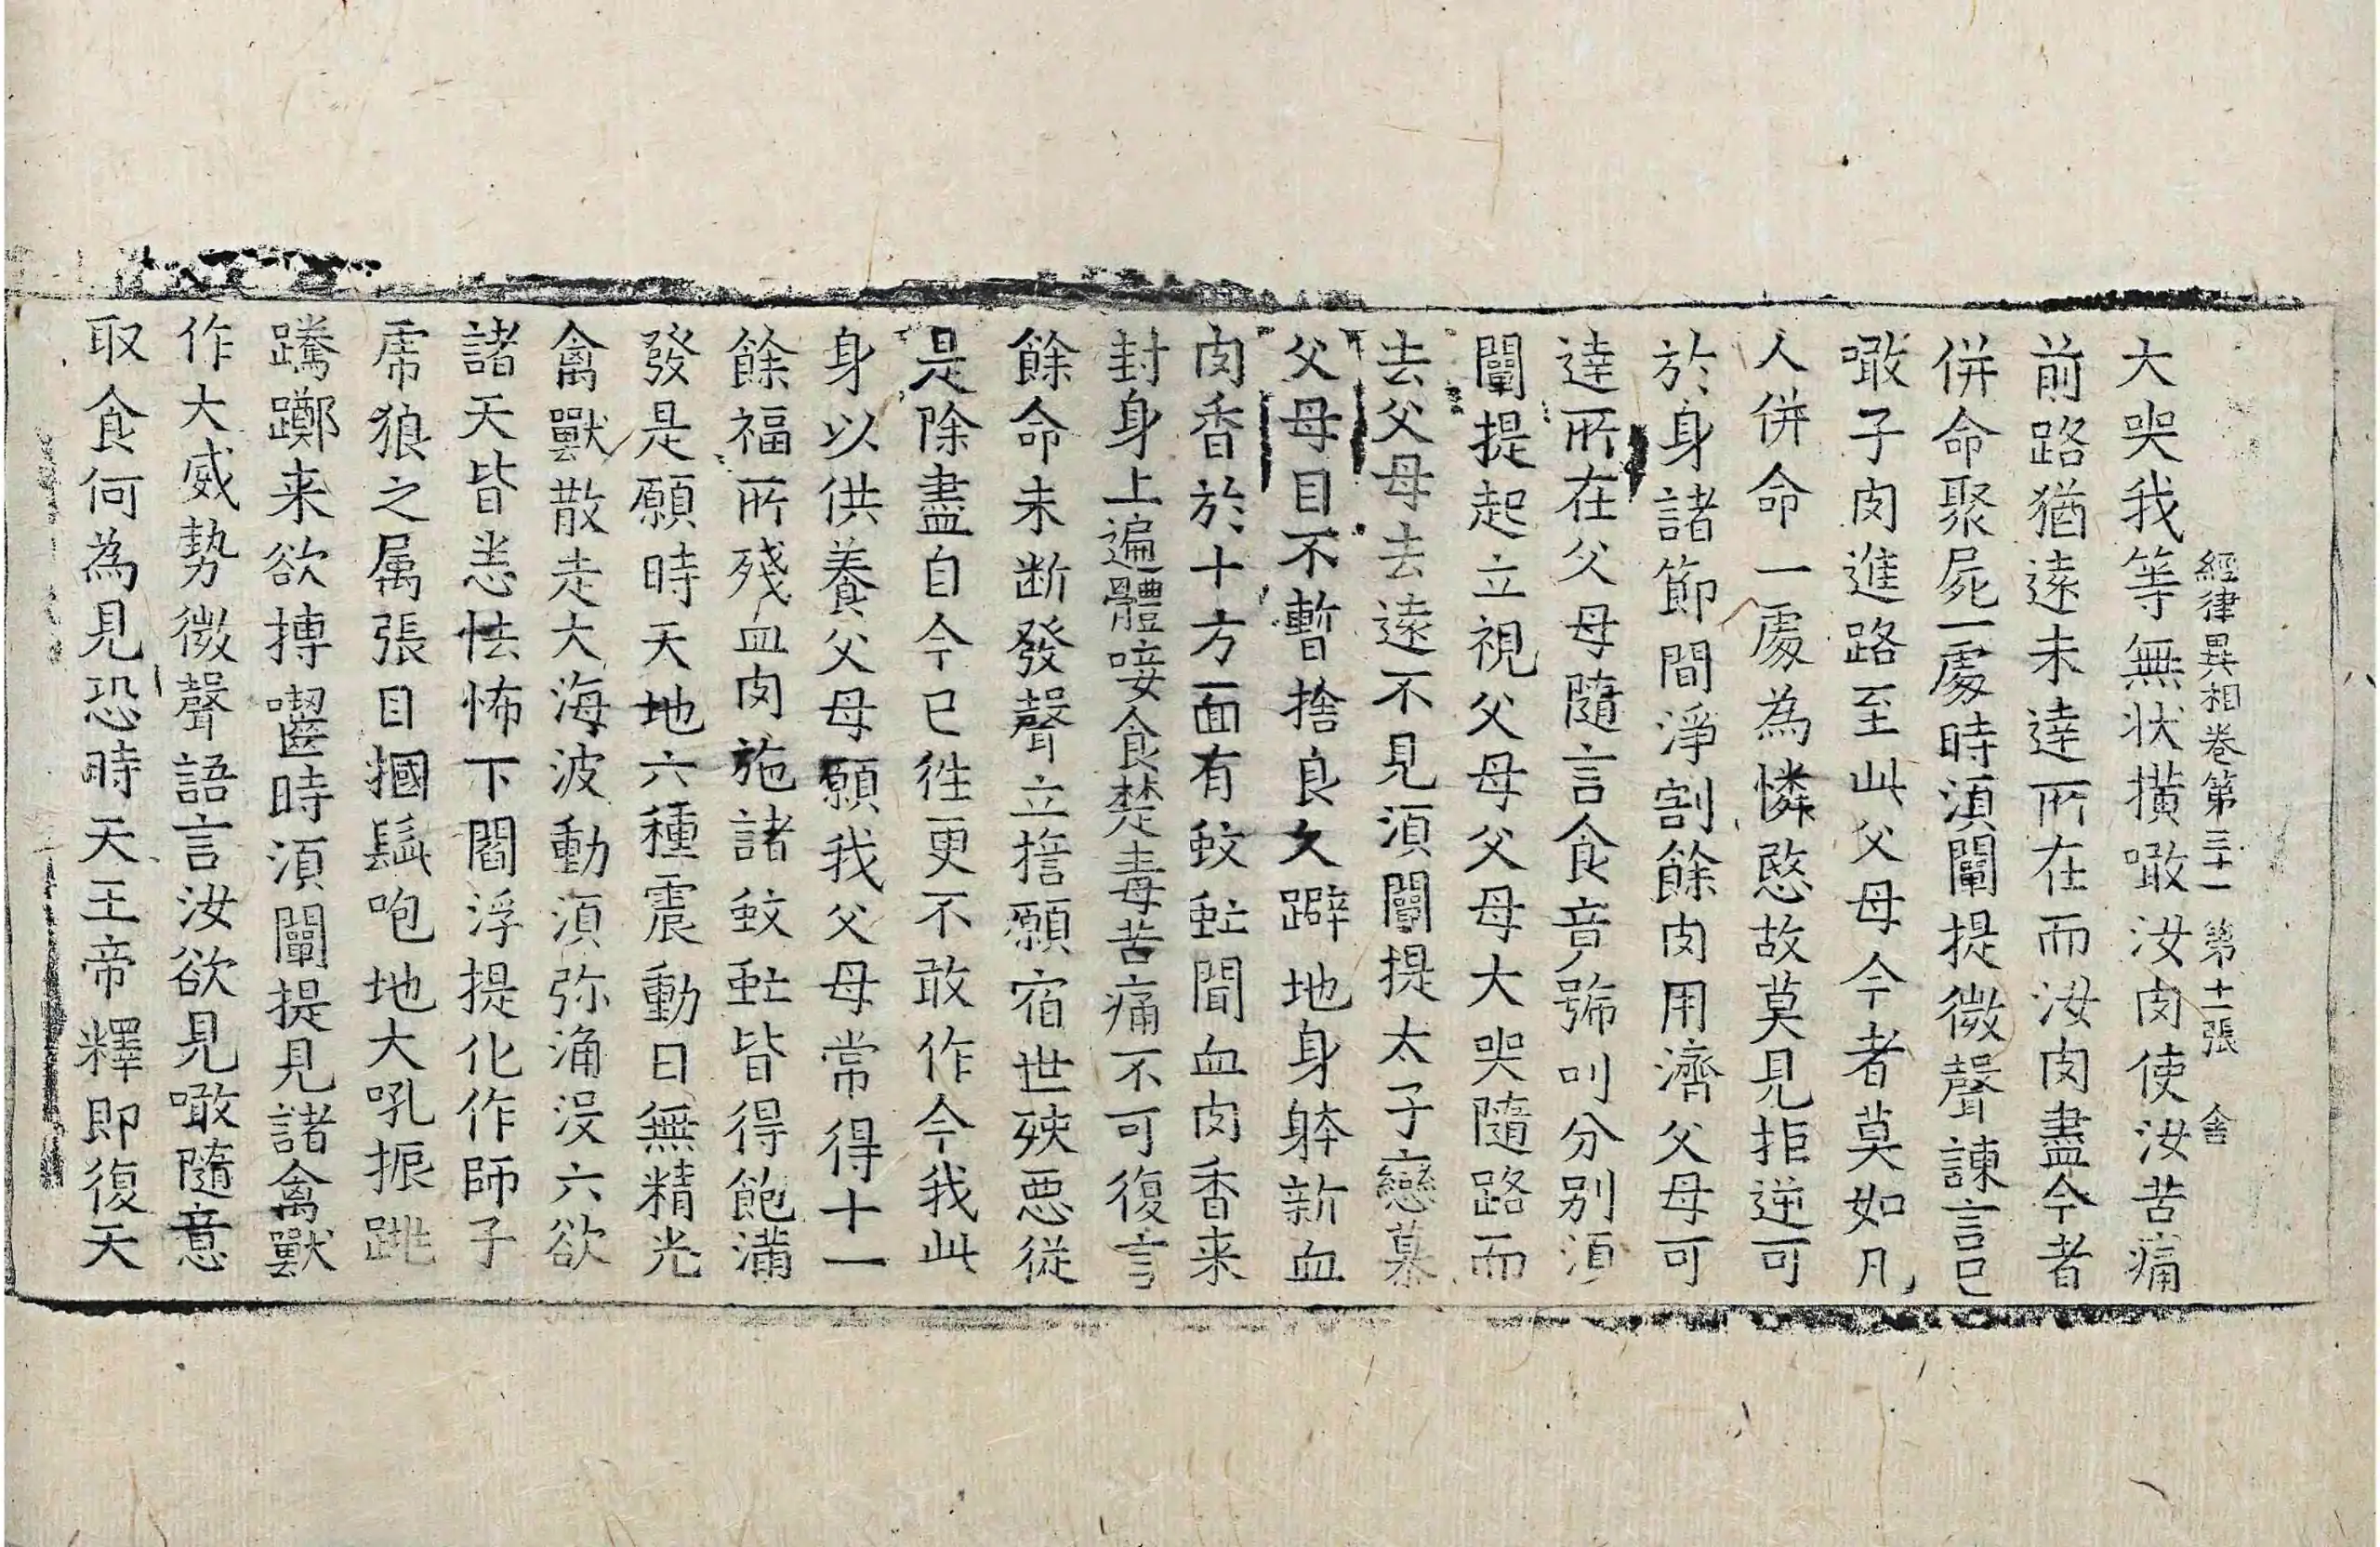 經律異相卷第三十一 第十二張 舍
大哭我等無状撗噉汝肉使汝苦痛
前路猶遠未達所在而汝肉盡今者
併命聚屍一處時湏闡提微聲諫言已
噉子肉進路至此父母今者莫如凡
人併命一處為憐愍故莫見拒逆可
於身諸節間淨割餘肉用濟父母可
達所在父母隨言食竟號叫分別湏
闡提起立視父母父母大哭隨路而
去父母去遠不見湏闡提太子戀慕
父母目不暫捨良久躃地身躰新血
肉香於十方面有蚊䖟聞血肉香来
封身上遍體唼食楚毒苦痛不可復言
餘命未断發聲立擔願宿世殃惡従
是除盡自今已徃更不敢作今我此
身以供養父母願我父母常得十一
餘福所殘血肉施諸蚊䖟皆得飽滿
發是願時天地六種震動日無精光
禽獸散走大海波動湏弥涌没六欲
諸天皆恙怯怖下閻浮提化作師子
虎狼之属張目摑䰇咆地大吼振跳
蹹躑来欲搏齧時湏闡提見諸禽獸
作大威勢微聲語言汝欲見噉隨意
取食何為見恐時天王帝釋即復天